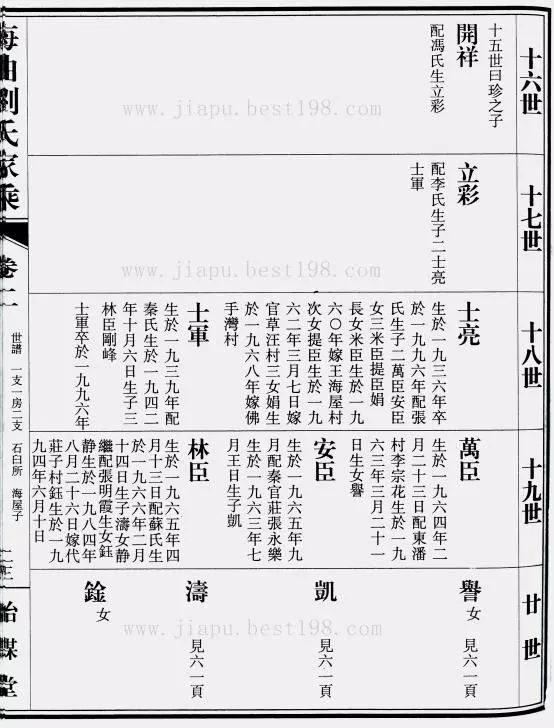 十六世
十五世曰珍之子
開祥
配馮氏生立彩
十七世
立彩
配李氏生子二士亮
士軍
十八世
士亮
生於一九三六年卒
於一九九六年配張
氏生子二萬臣安臣
女三米臣提臣娟
長女米臣生於一九
六〇年嫁王海屋村
次女提臣生於一九
六二年三月七日嫁
官草汪村三女娟生
於一九六八年嫁佛
手灣村
士軍
生於一九三九年配
秦氏生於一九四二
年十月六日生子三
林臣剛峰
士軍卒於一九九六年
十九世
萬臣
生於一九六四年二
月二十三日配東潘
村李宗花生於一九
六三年三月二十一
日生女譽
安臣
生於一九六五年九
月配秦官莊張永樂
生於一九六三年七
月王日生子凱
林臣
生於一九六五年四
月十三日配蘇氏生
於一九六六年二月
十四日生子濤女静
繼配張明霞生女鈺
静生於一九八四年
八月二十六日嫁代
莊子村鈺生於一九
九四年六月十日
廿世
譽
女 見六一頁
凱
見六一頁
濤
見六一頁
銓
女
海曲劉氏家乘
卷二
世譜 一支一房二支 石臼所 海屋子
二三
怡謀堂
www.jiapu.best198.com
www.jiapu.best198.com
www.jiapu.best198.com